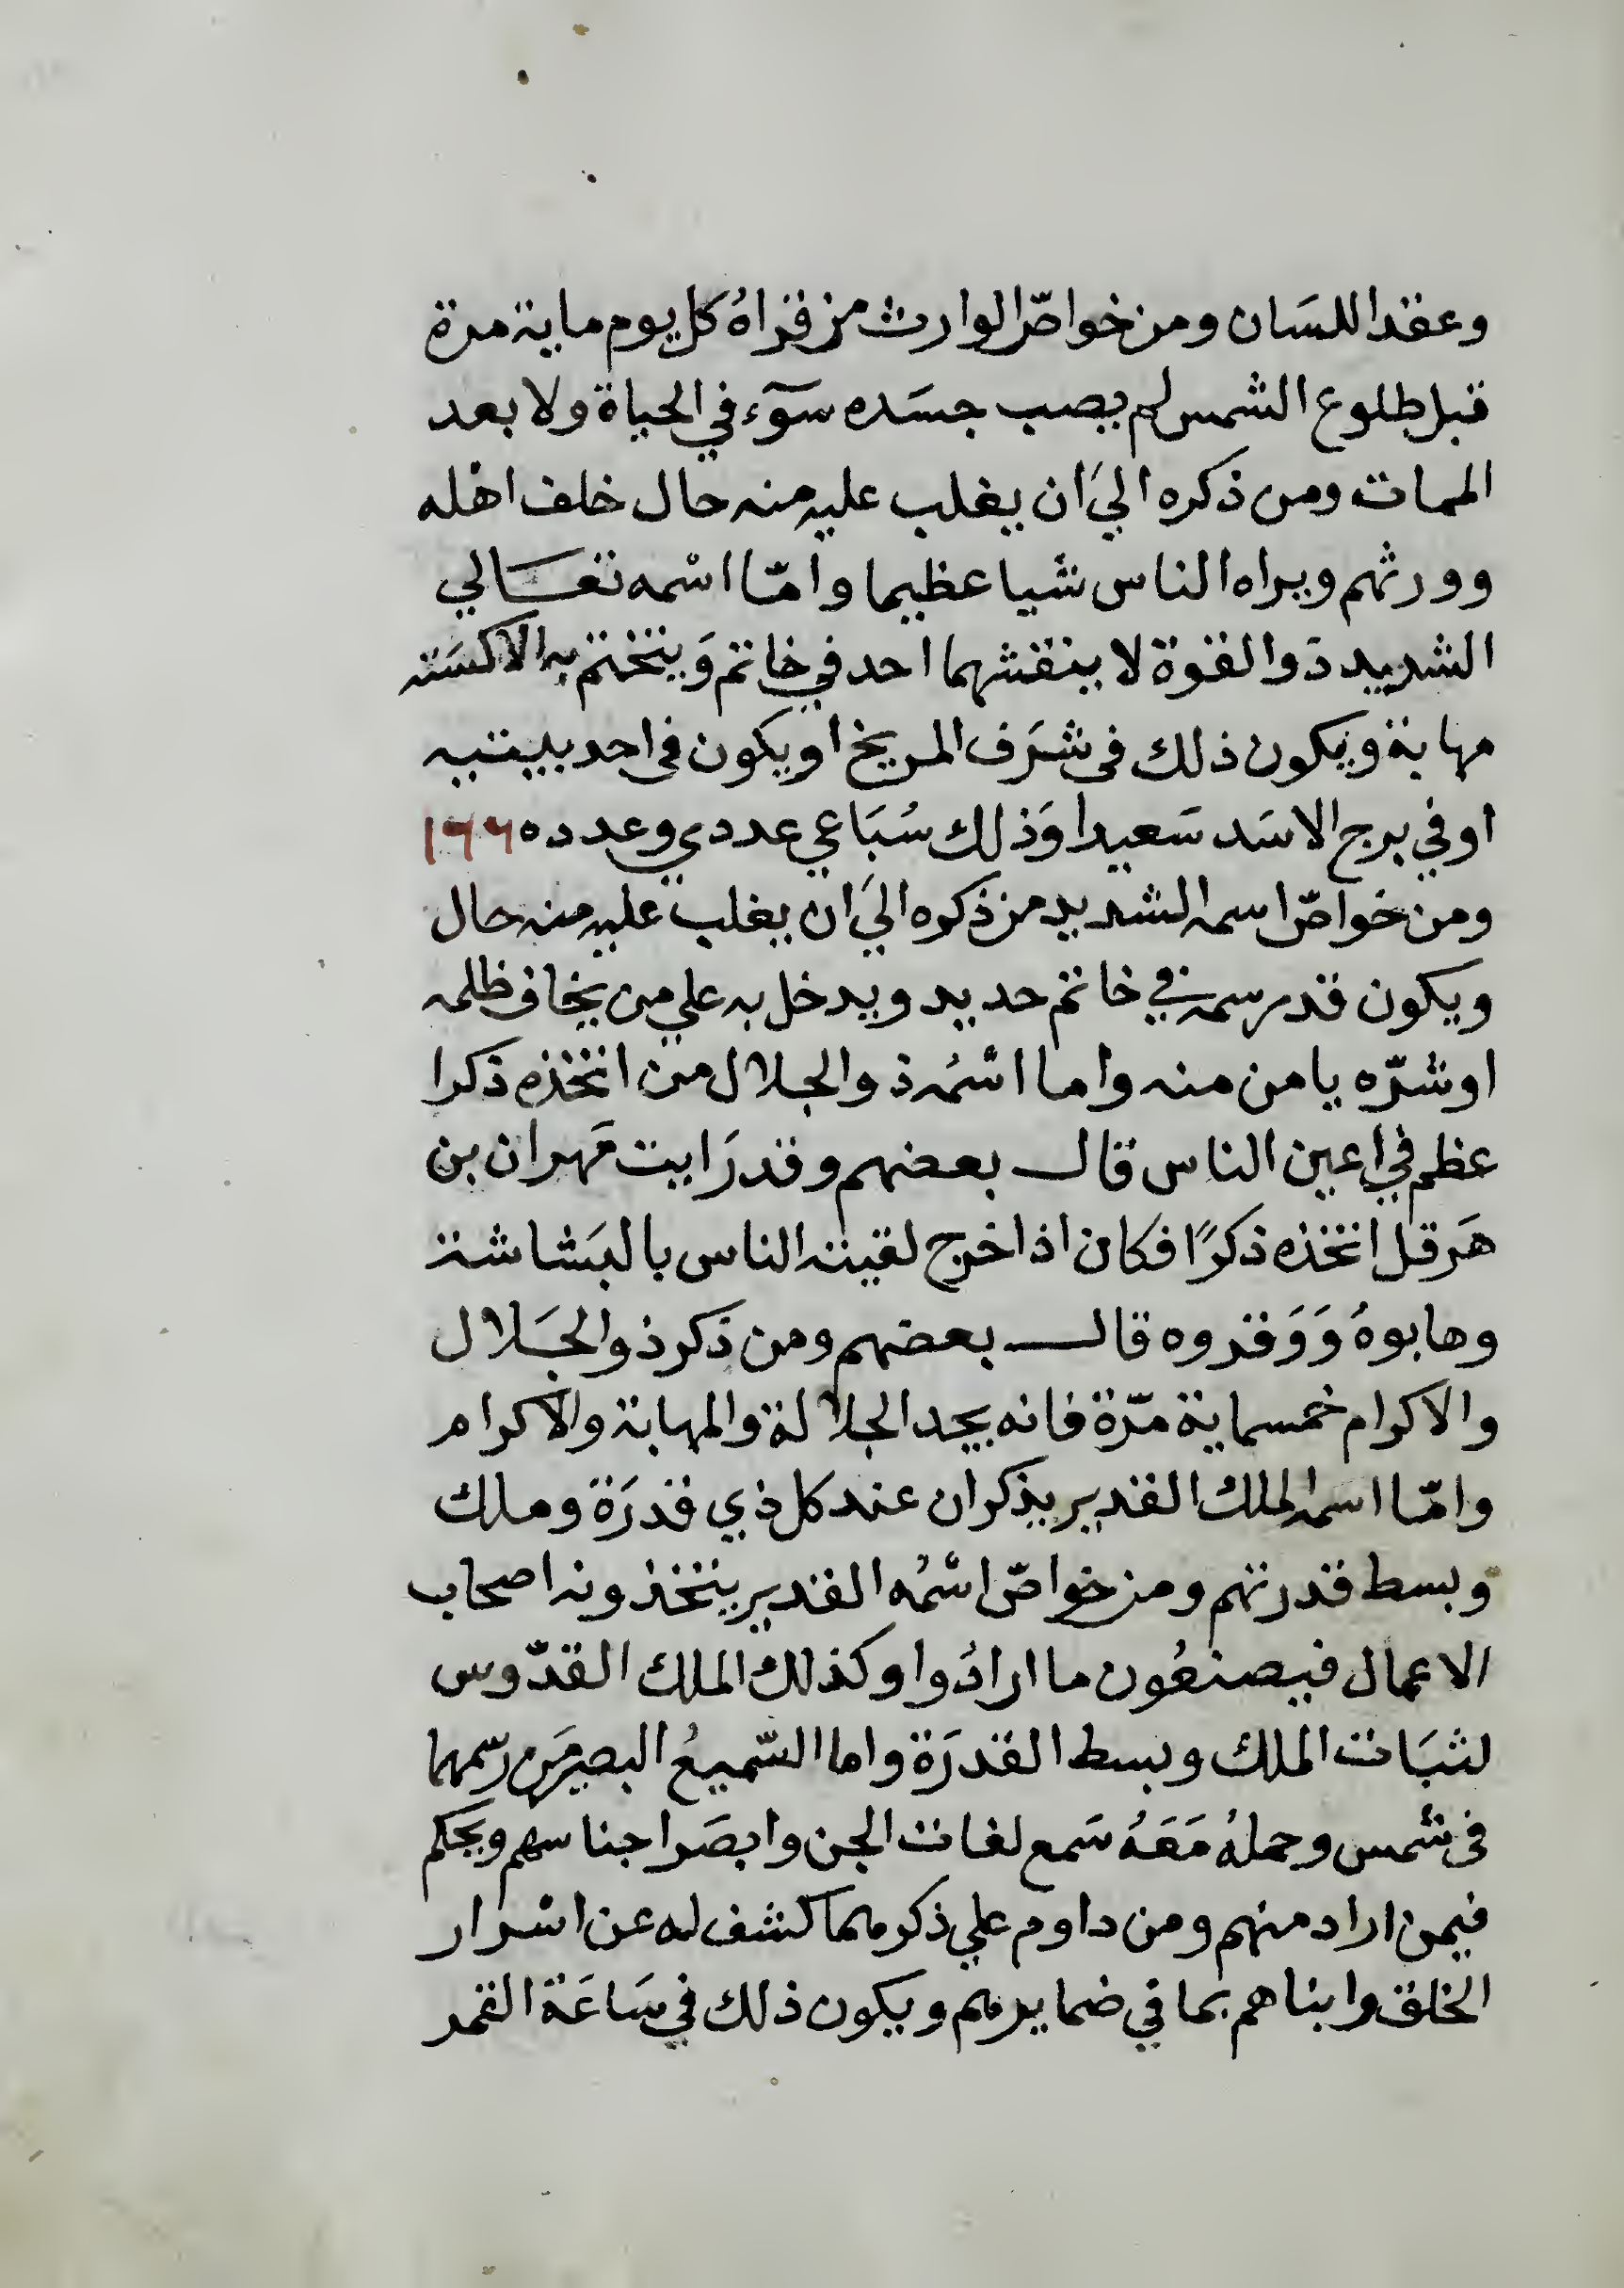 وعقد اللسَان ومن خواصّ الوارث من قراهُ كل يوم ماية مرة
قبل طلوع الشمس لم يصب جسَده سوٓء في الحياة ولا بعد
الممات ومن ذكره اليَ ان يغلب عليه منه حال خلف اهْله
وورثهم ويراه الناس شيا عظيما وامّا اسْمه تعَالي
الشديد ذوا القوة لا ينقشهما احد في خاتم وَيتختم به الا كسَته
مهابة ويكون ذلك في شرَف المريخ او يكون في احد بيتيه
او في برج الاسَد سَعيدا وَذلك سُبَاعي عددي وعدده
ومن خواصّ اسمه الشديد من ذكره اليَ ان يغلب عليه منه حال
ويكون قد رسمه في خاتم حديد ويدخل به علي من يخاف ظلمه
او شرّه يامن منه واما اسْمُه ذو الجلال من اتخذه ذكرا
عظم في اعين الناس قال بعضهم وقد رَايت مَهران بن
هَرقل اتخذه ذكرًا فكان اذا خرج لقيته الناس بالبَشاشة
وهابوهُ وَوَقروه قال بعضهم ومن ذكر ذو الجَلال
والاكرام خمسماية مرّة فانه يجد الجلالة والمهابة والاكرام
وامّا اسمه الملك القدير يذكران عند كل ذي قدرَة وملك
وبسط قدرتهم ومن خواصّ اسْمُه القدير يتخذونه اصحاب
الاعمال فيصنعُون ما ارادُوا وكذلك الملك القدّوس
لثبَات الملك وبسط القدرَة واما السّميعُ البصير مَن رسّمهما
في شمس وحملهُ مَعَهُ سَمع لغات الجن وابصَر اجناسهم ويحكم
فيمن اراد منهم ومن داوم علي ذكرهما كشف له عن اسْرار
الخلق وابناهم بما في ضمايرهم ويكون ذلك في سَاعَة القمر